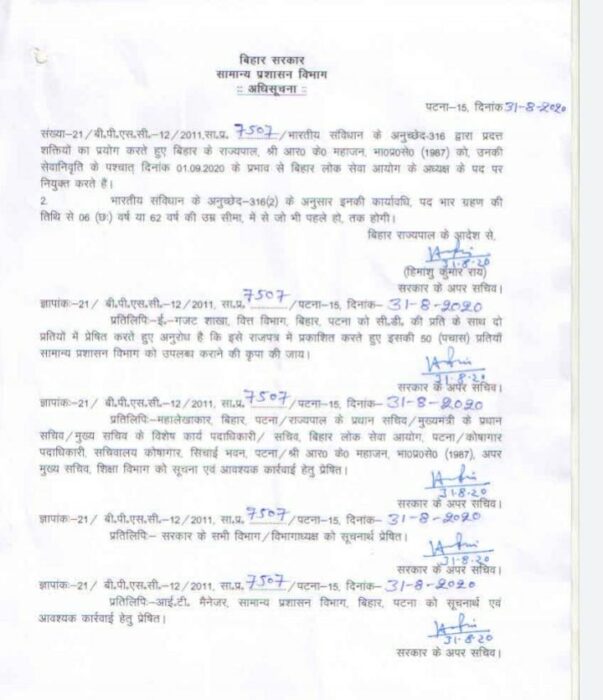 बिहार सरकार
सामान्य प्रशासन विभाग
:: अधिसूचना ::
पटना-15, दिनांक 31-8-2020
संख्या-21/बी.पी.एस.सी.-12/2011,सा.प्र. 7507/भारतीय संविधान के अनुच्छेद-316 द्वारा प्रदत्त
शक्तियों का प्रयोग करते हुए बिहार के राज्यपाल, श्री आर० के० महाजन, भा०प्र०से० (1987) को, उनकी
सेवानिवृति के पश्चात् दिनांक 01.09.2020 के प्रभाव से बिहार लोक सेवा आयोग के अध्यक्ष के पद पर
नियुक्त करते हैं।
2. भारतीय संविधान के अनुच्छेद-316(2) के अनुसार इनकी कार्यावधि, पद भार ग्रहण की
तिथि से 06 (छः) वर्ष या 62 वर्ष की उम्र सीमा, में से जो भी पहले हो, तक होगी।
बिहार राज्यपाल के आदेश से,
31-8-20
(हिमांशु कुमार राय)
सरकार के अपर सचिव।
ज्ञापांकः-21/ बी.पी.एस.सी.-12/2011, सा.प्र. 7507/पटना-15, दिनांक- 31-8-2020
प्रतिलिपि:-ई.-गजट शाखा, वित्त विभाग, बिहार, पटना को सी.डी. की प्रति के साथ दो
प्रतियों में प्रेषित करते हुए अनुरोध है कि इसे राजपत्र में प्रकाशित करते हुए इसकी 50 (पचास) प्रतियाँ
सामान्य प्रशासन विभाग को उपलब्ध कराने की कृपा की जाय।
31-8-20
सरकार के अपर सचिव।
ज्ञापांकः-21/ बी.पी.एस.सी.-12/2011, सा.प्र. 7507/पटना-15, दिनांक- 31-8-2020
प्रतिलिपि:-महालेखाकार, बिहार, पटना/राज्यपाल के प्रधान सचिव/मुख्यमंत्री के प्रधान
सचिव/मुख्य सचिव के विशेष कार्य पदाधिकारी/ सचिव, बिहार लोक सेवा आयोग, पटना/कोषागार
पदाधिकारी, सचिवालय कोषागार, सिंचाई भवन, पटना/श्री आर० के० महाजन, भा०प्र०से० (1987), अपर
मुख्य सचिव, शिक्षा विभाग को सूचना एवं आवश्यक कार्रवाई हेतु प्रेषित।
31-8-20
सरकार के अपर सचिव।
ज्ञापांकः-21/ बी.पी.एस.सी.-12/2011, सा.प्र. 7507/पटना-15, दिनांक- 31-8-2020
प्रतिलिपि:- सरकार के सभी विभाग/विभागाध्यक्ष को सूचनार्थ प्रेषित।
31-8-20
सरकार के अपर सचिव।
ज्ञापांकः-21/ बी.पी.एस.सी.-12/2011, सा.प्र. 7507/पटना-15, दिनांक- 31-8-2020
प्रतिलिपि:-आई.टी. मैनेजर, सामान्य प्रशासन विभाग, बिहार, पटना को सूचनार्थ एवं
आवश्यक कार्रवाई हेतु प्रेषित।
31-8-20
सरकार के अपर सचिव।